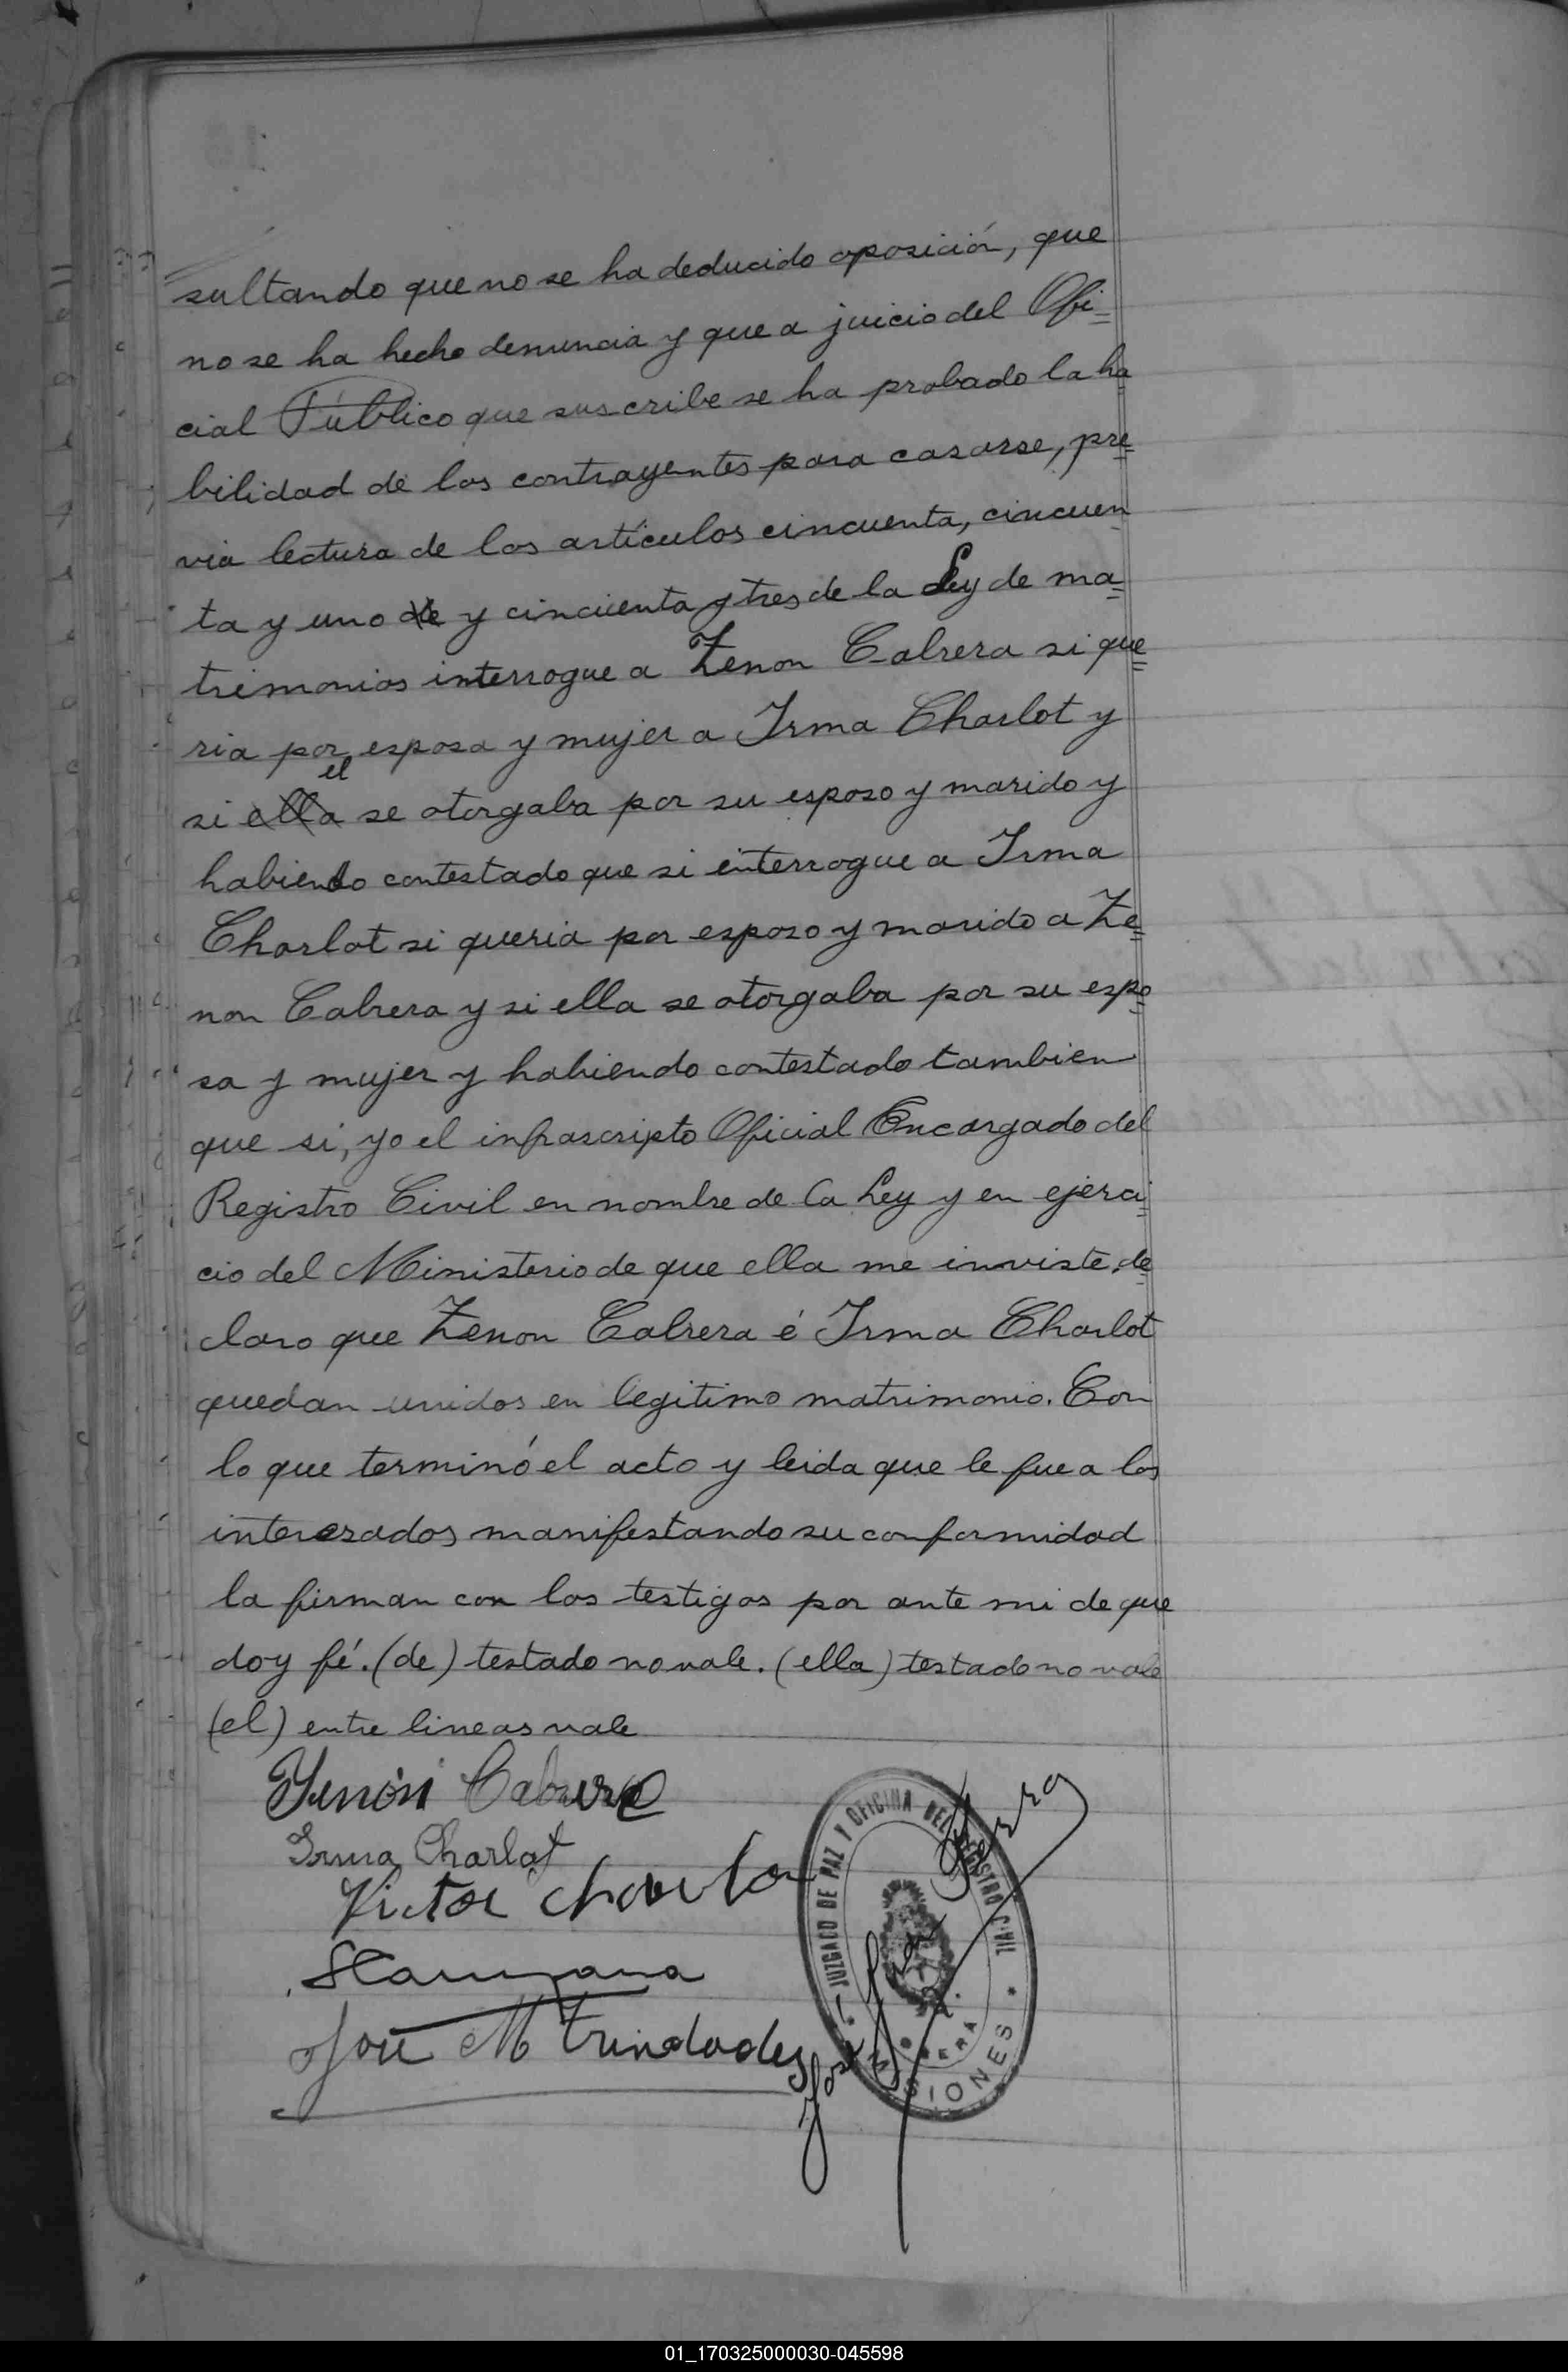 sultando que no se ha deducido oposición, que
no se ha hecho denuncia y que a juicio del Ofi=
cial Público que suscribe se ha probado la ha
bilidad de los contrayentes para casarse, pre=
via lectura de los artículos cincuenta, cincuen
ta y uno de y cincuenta y tres de la Ley de ma=
trimonios interrogue a Zenon Cabrera si que=
ria por esposa y mujer a Irma Charlot y
el
si ella se otorgaba por su esposo y marido y
habiendo contestado que si interrogue a Irma
Charlot si queria por esposo y marido a Ze=
non Cabrera y si ella se otorgaba por su espo=
sa y mujer y habiendo contestado tambien
que si, yo el infrascripto Oficial Encargado del
Registro Civil en nombre de la Ley y en ejerci=
cio del Ministerio de que ella me inviste, de=
claro que Zenon Cabrera é Irma Charlot
quedan unidos en legitimo matrimonio. Con
lo que terminó el acto y leida que le fue a los
interesados manifestando su conformidad
la firman con los testigos por ante mi de que
doy fé. (de) testado no vale. (ella) testado no vale
(el) entre lineas vale
Zenón Cabrera
Irma Charlot
Victor Charlot
José M Trindades
JUZGADO DE PAZ Y OFICINA DEL REGISTRO CIVIL